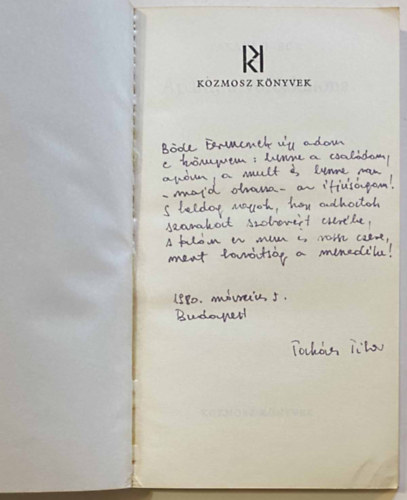 KOZMOSZ KÖNYVEK
Böde Ferencnek úgy adom
e könyvem: benne a családom,
apám, a mult és benne van
– majd olvassa – az ifjúságom!
S boldog vagyok, hogy adhatok
szavakat szobor cserébe,
s talán ez nem is rossz csere,
mert barátság a menedéke!
1980. március 5.
Budapest
Takács Tibor